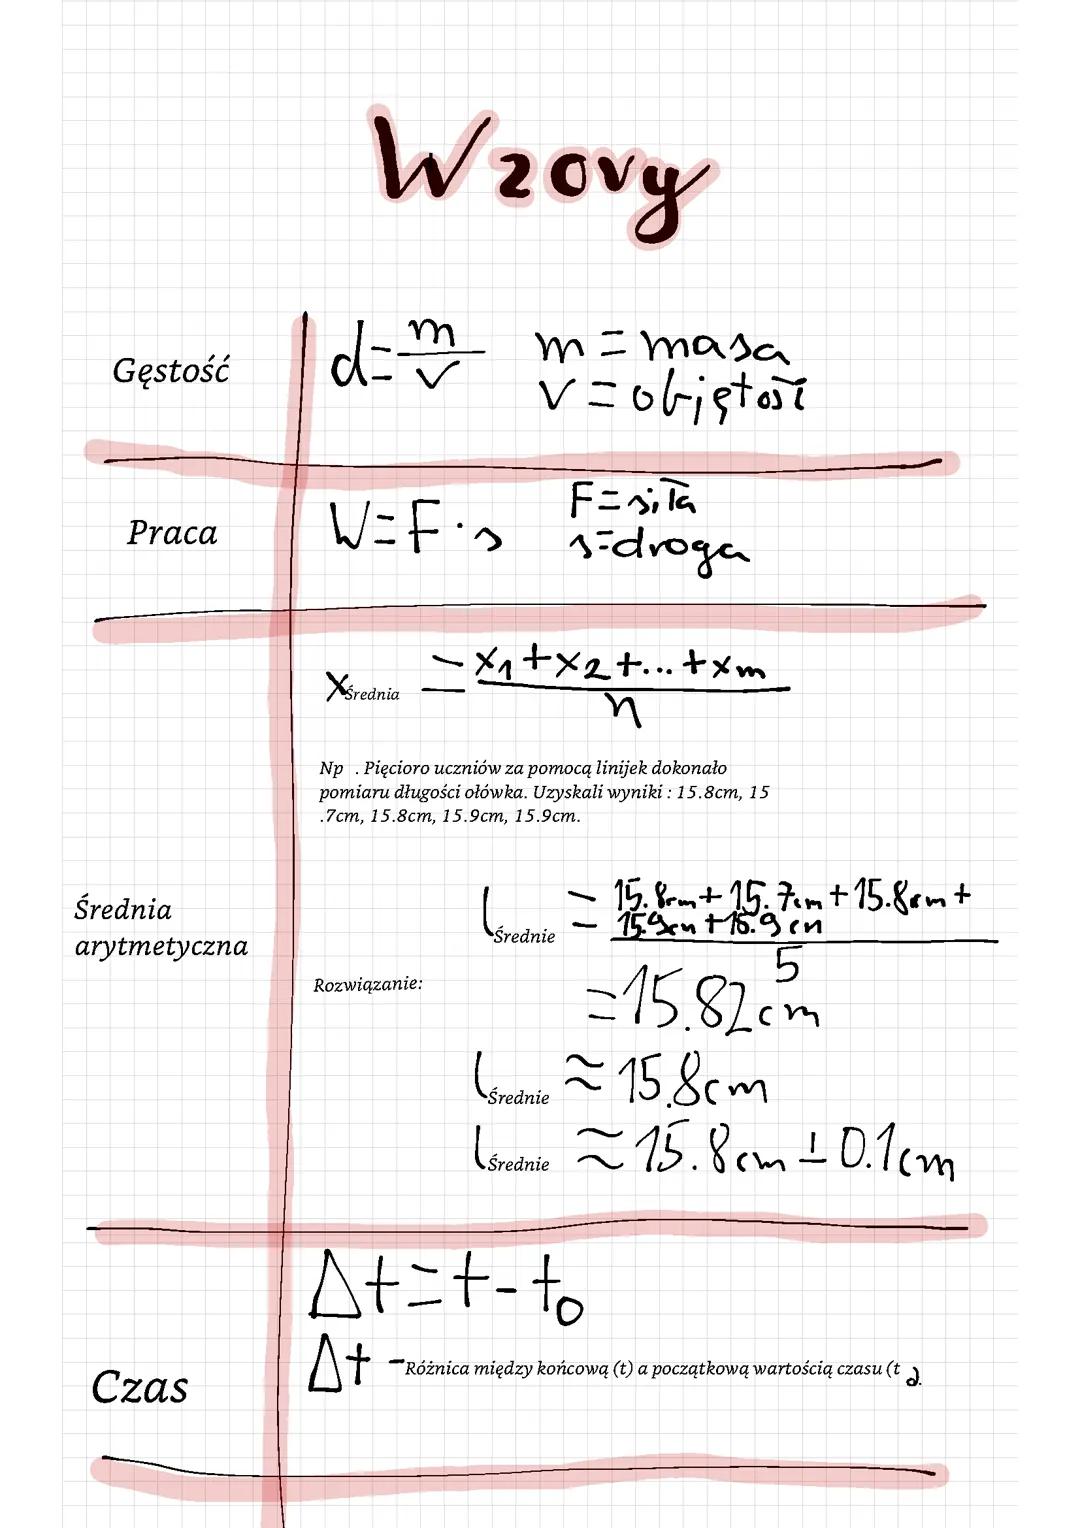 Wzory
Gęstość
d = m / v
m = masa
v = objętość
Praca
W = F · s
F = siła
s = droga
Średnia
arytmetyczna
X Średnia = x1 + x2 + ... + xm / n
Np . Pięcioro uczniów za pomocą linijek dokonało
pomiaru długości ołówka. Uzyskali wyniki : 15.8cm, 15
.7cm, 15.8cm, 15.9cm, 15.9cm.
Rozwiązanie:
l Średnie = 15.8cm + 15.7cm + 15.8cm +
15.9cm + 15.9cm
5
= 15.82cm
l Średnie ≈ 15.8cm
l Średnie ≈ 15.8cm ± 0.1cm
Czas
Δt = t - t0
Δt - Różnica między końcową (t) a początkową wartością czasu (t